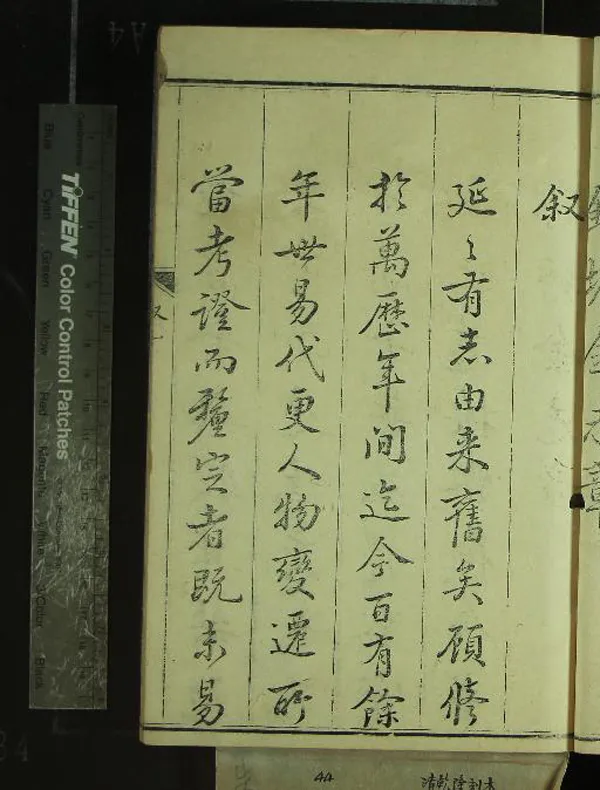 叙
延〻有志由来舊矣顧修
於萬歷年间迄今百有餘
年世易代更人物變遷所
當考證而釐定者既未易
叙一
TIFFEN Color Control Patches
Blue
Cyan
Green
Yellow
Red
Magenta
Black
44
清乾隆刻本